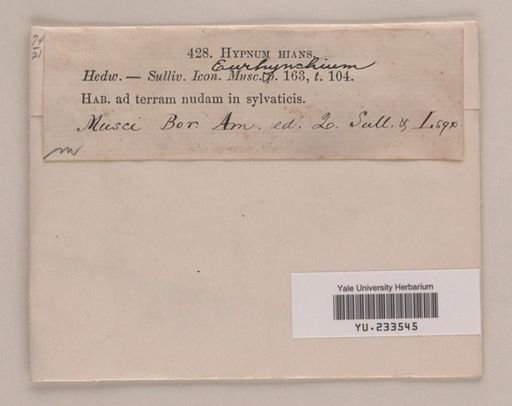 74
21
428. HYPNUM HIANS,
Eurhynchium
Hedw. — Sulliv. Icon. Musc. p. 163, t. 104.
HAB. ad terram nudam in sylvaticis.
Musci Bor. Am. ed. 2. Sull. & Lsqx.
Yale University Herbarium
YU.233545